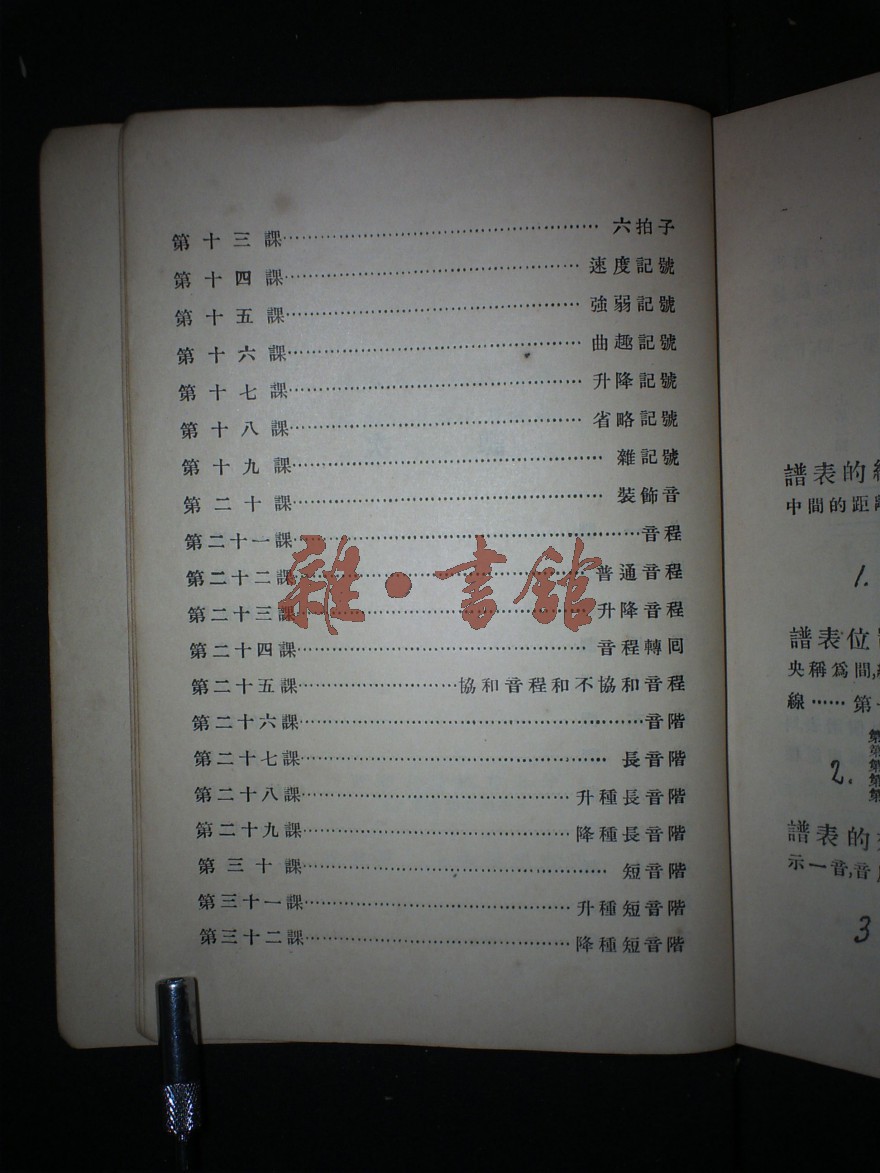 第十三課……六拍子
第十四課……速度記號
第十五課……強弱記號
第十六課……曲趣記號
第十七課……升降記號
第十八課……省略記號
第十九課……雜記號
第二十課……裝飾音
第二十一課……音程
第二十二課……普通音程
第二十三課……升降音程
第二十四課……音程轉回
第二十五課……協和音程和不協和音程
第二十六課……音階
第二十七課……長音階
第二十八課……升種長音階
第二十九課……降種長音階
第三十課……短音階
第三十一課……升種短音階
第三十二課……降種短音階
雜·書館
譜表的
中間的距
1.
譜表位
央稱爲間,
線……第
2.
譜表的
示一音,音
3